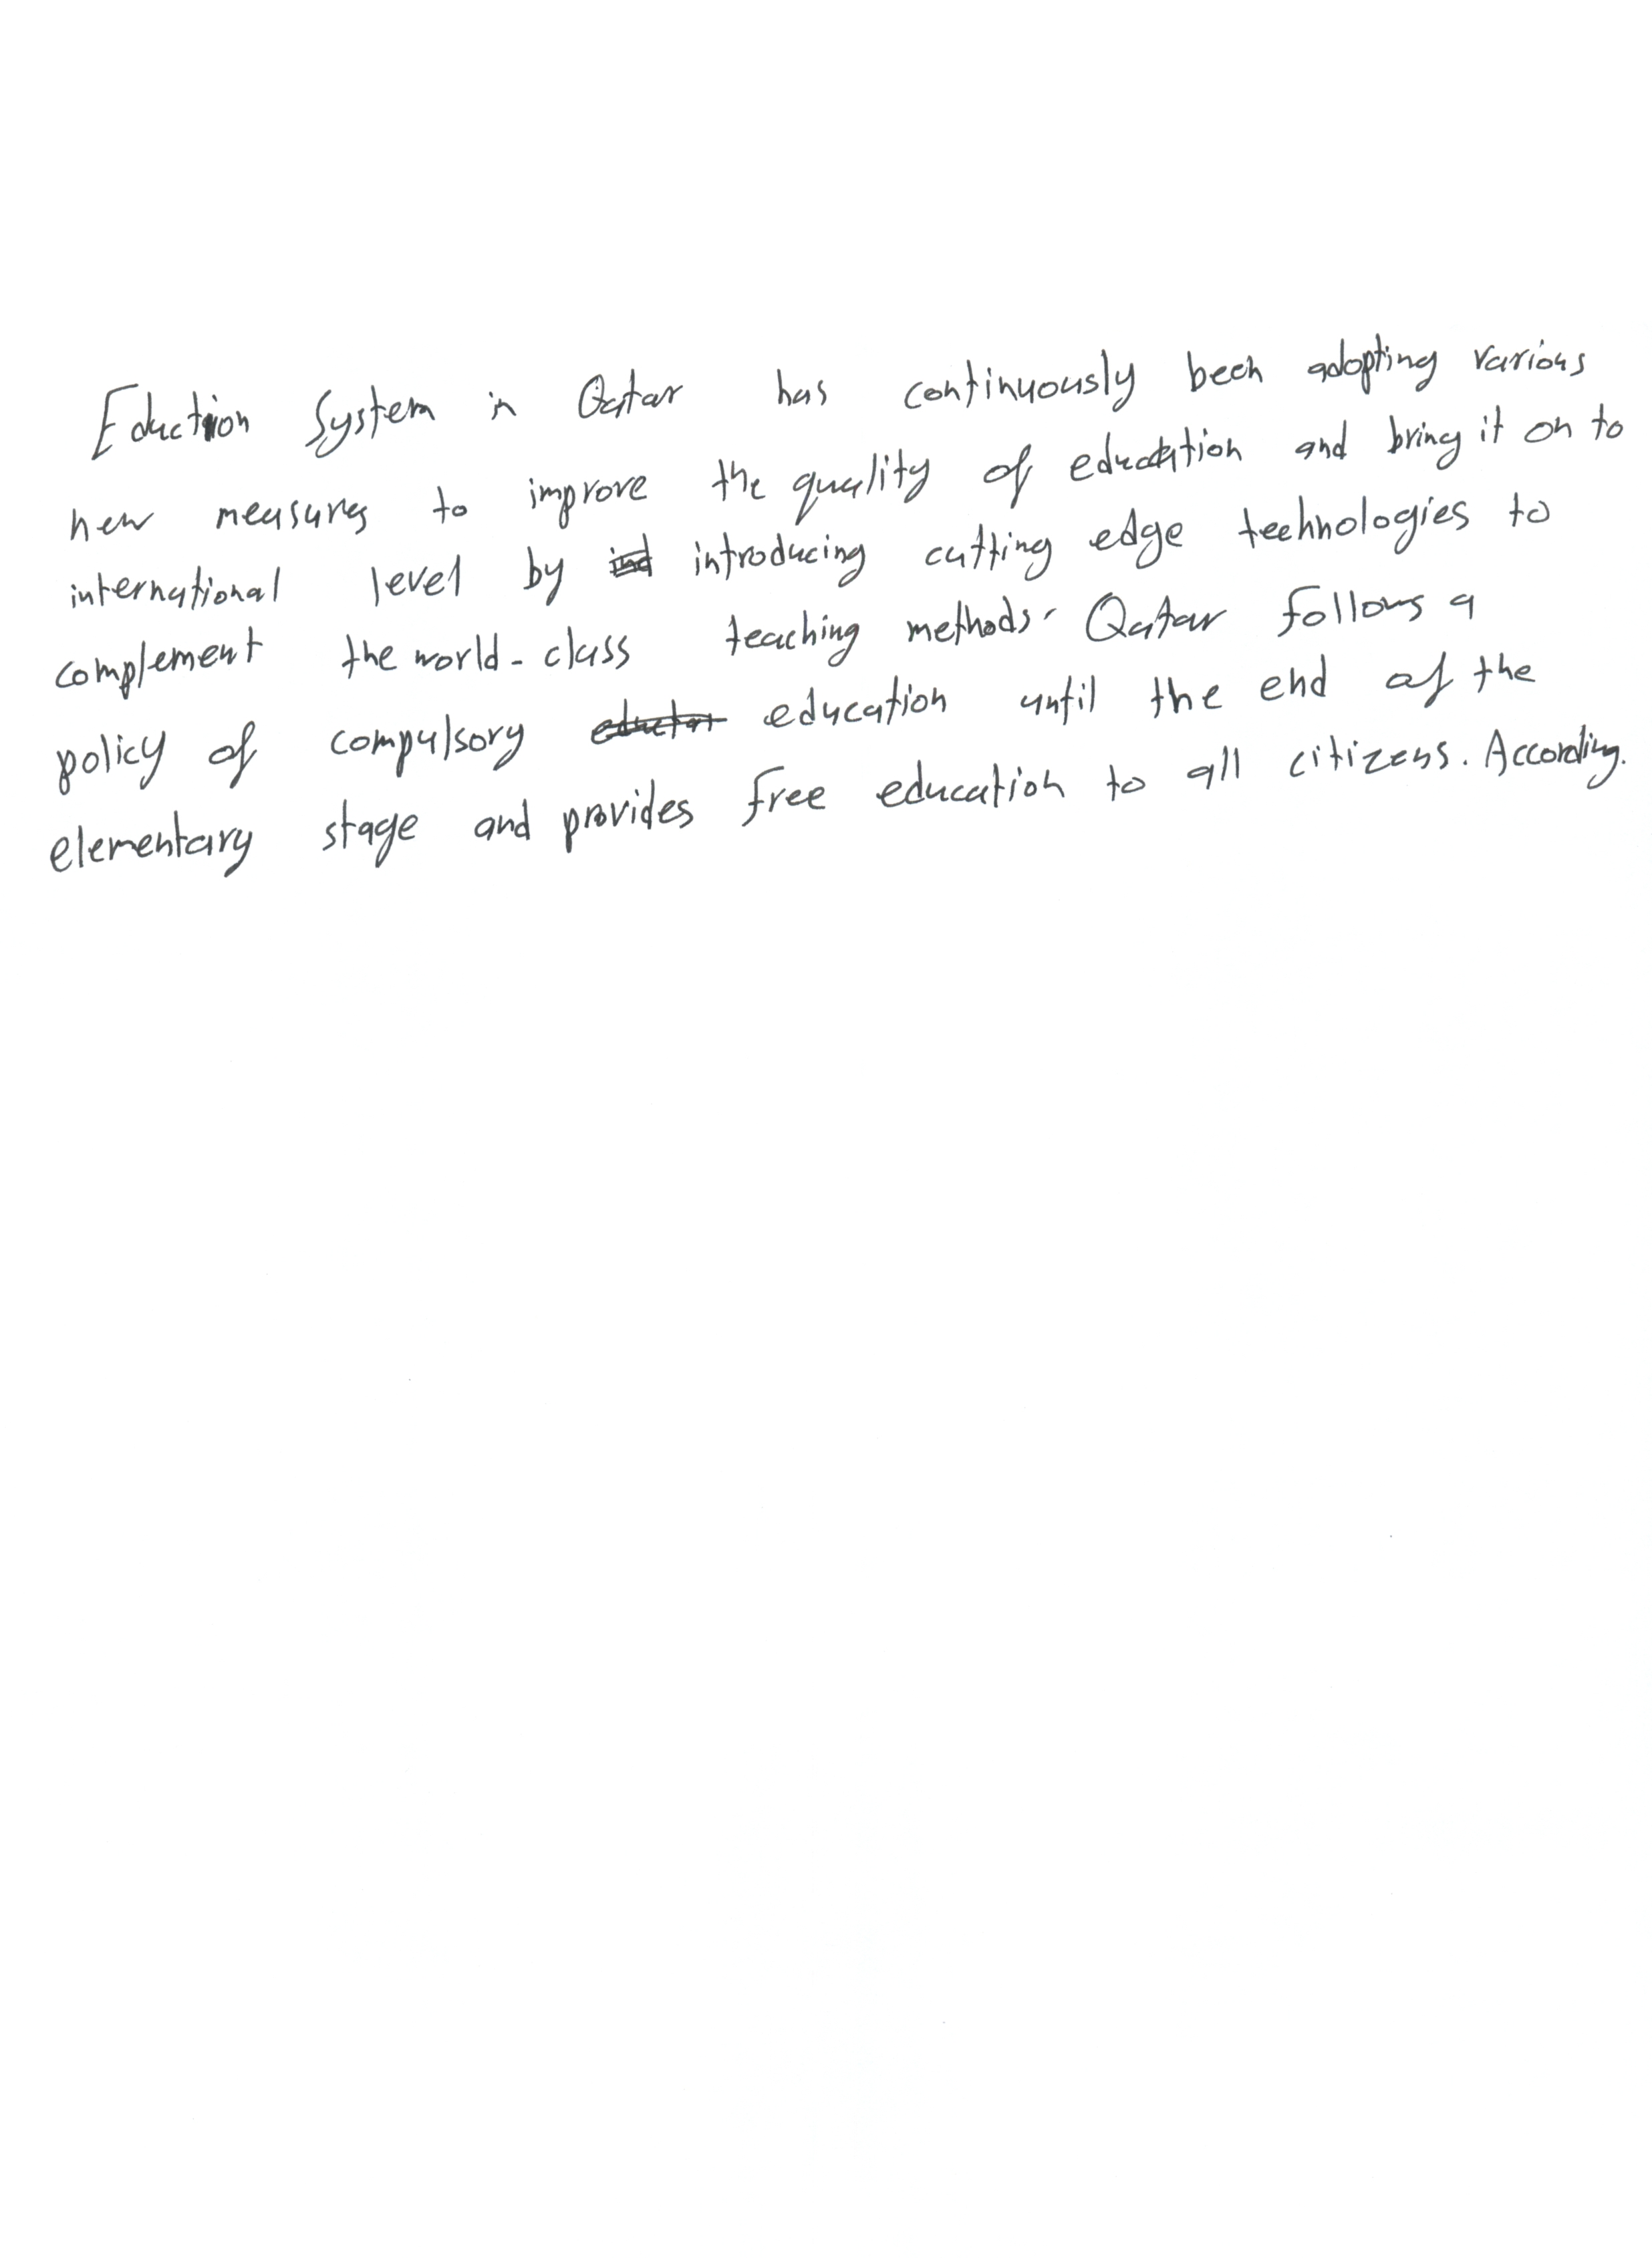 Eduction System in Qatar has continuously been adopting various
new measures to improve the quality of education and bring it on to
international level by introducing cutting edge technologies to
complement the world-class teaching methods. Qatar follows a
policy of compulsory education until the end of the
elementary stage and provides free education to all citizens. According.